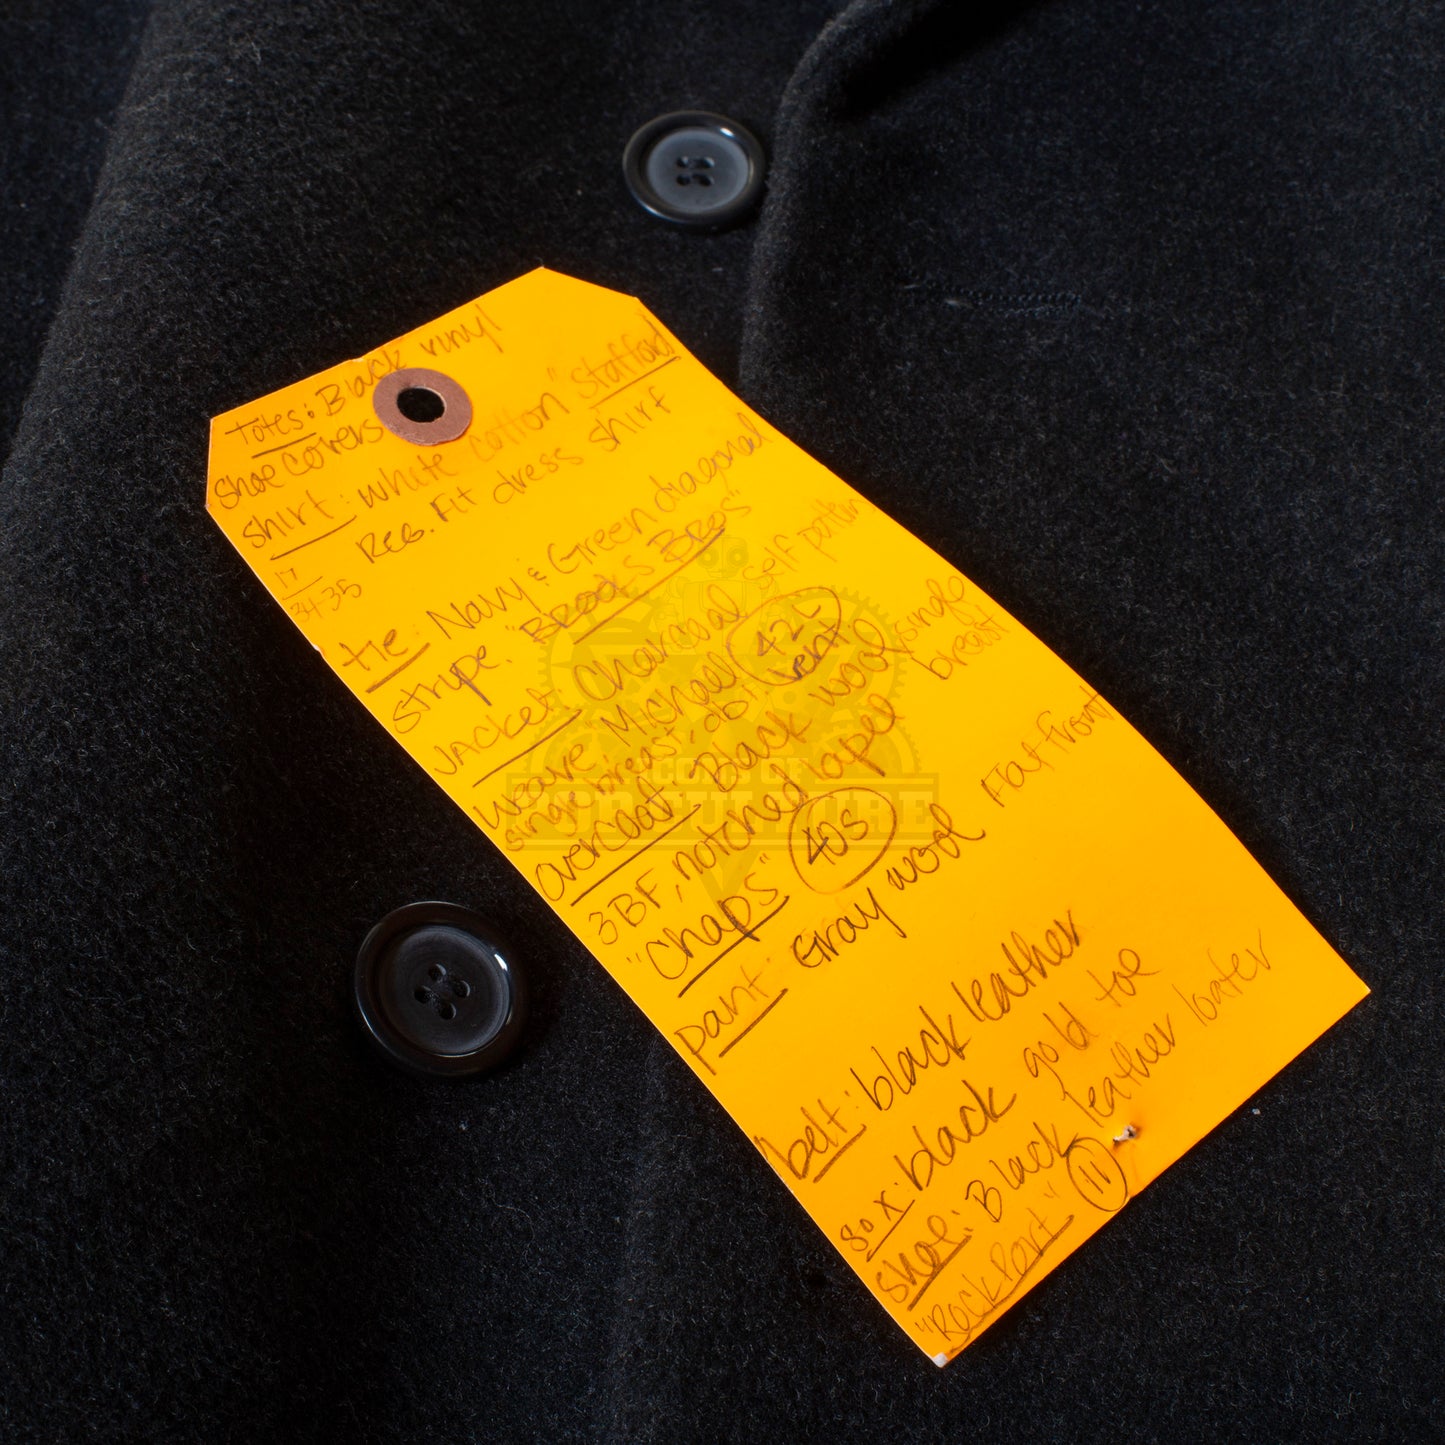 Totes: Black vinyl
shoe covers
shirt: white cotton "Stafford"
Reg. Fit dress shirt
17
34-35
tie: Navy & Green diagonal
stripe. "Brooks Bros"
Jacket: Charcoal self pattern
weave, Michael 42L
single breast, dbl vent
overcoat: Black wool/single breast
3BF, notched lapel
"Chaps" 40S
pant: Gray wool Flat front
belt: black leather
sox: black gold toe
shoe: Black leather loafer
"RockPort" 11
ICONS OF